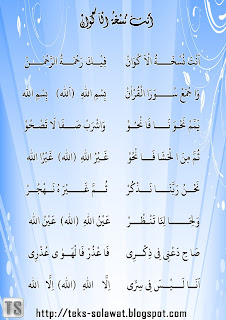 أنت نسخة الأكوان
أنت نسخة الأكوان فيك رحمة الرحمن
واجمع سور القرآن بسم الله (الله) بسم الله
يمم نحونا فانحو واشرب صفا لا تصحو
ثم من الحشا فانحو غير الله (الله) غير الله
نحن ربنا نذكر ثم غيره نهجر
ولجنا لنا تنظر عين الله (الله) عين الله
صاح دعني في ذكري فاعذر فالهوى عذري
أنا ليس في سري إلا الله (الله) إلا الله
TS
http://teks-solawat.blogspot.com